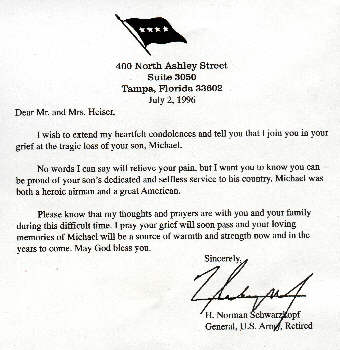 400 North Ashley Street
Suite 3050
Tampa, Florida 33602
July 2, 1996
Dear Mr. and Mrs. Heiser,
I wish to extend my heartfelt condolences and tell you that I join you in your
grief at the tragic loss of your son, Michael.
No words I can say will relieve your pain, but I want you to know you can
be proud of your son's dedicated and selfless service to his country. Michael was
both a heroic airman and a great American.
Please know that my thoughts and prayers are with you and your family
during this difficult time. I pray your grief will soon pass and your loving
memories of Michael will be a source of warmth and strength now and in the
years to come. May God bless you.
Sincerely,
H. Norman Schwarzkopf
General, U.S. Army, Retired